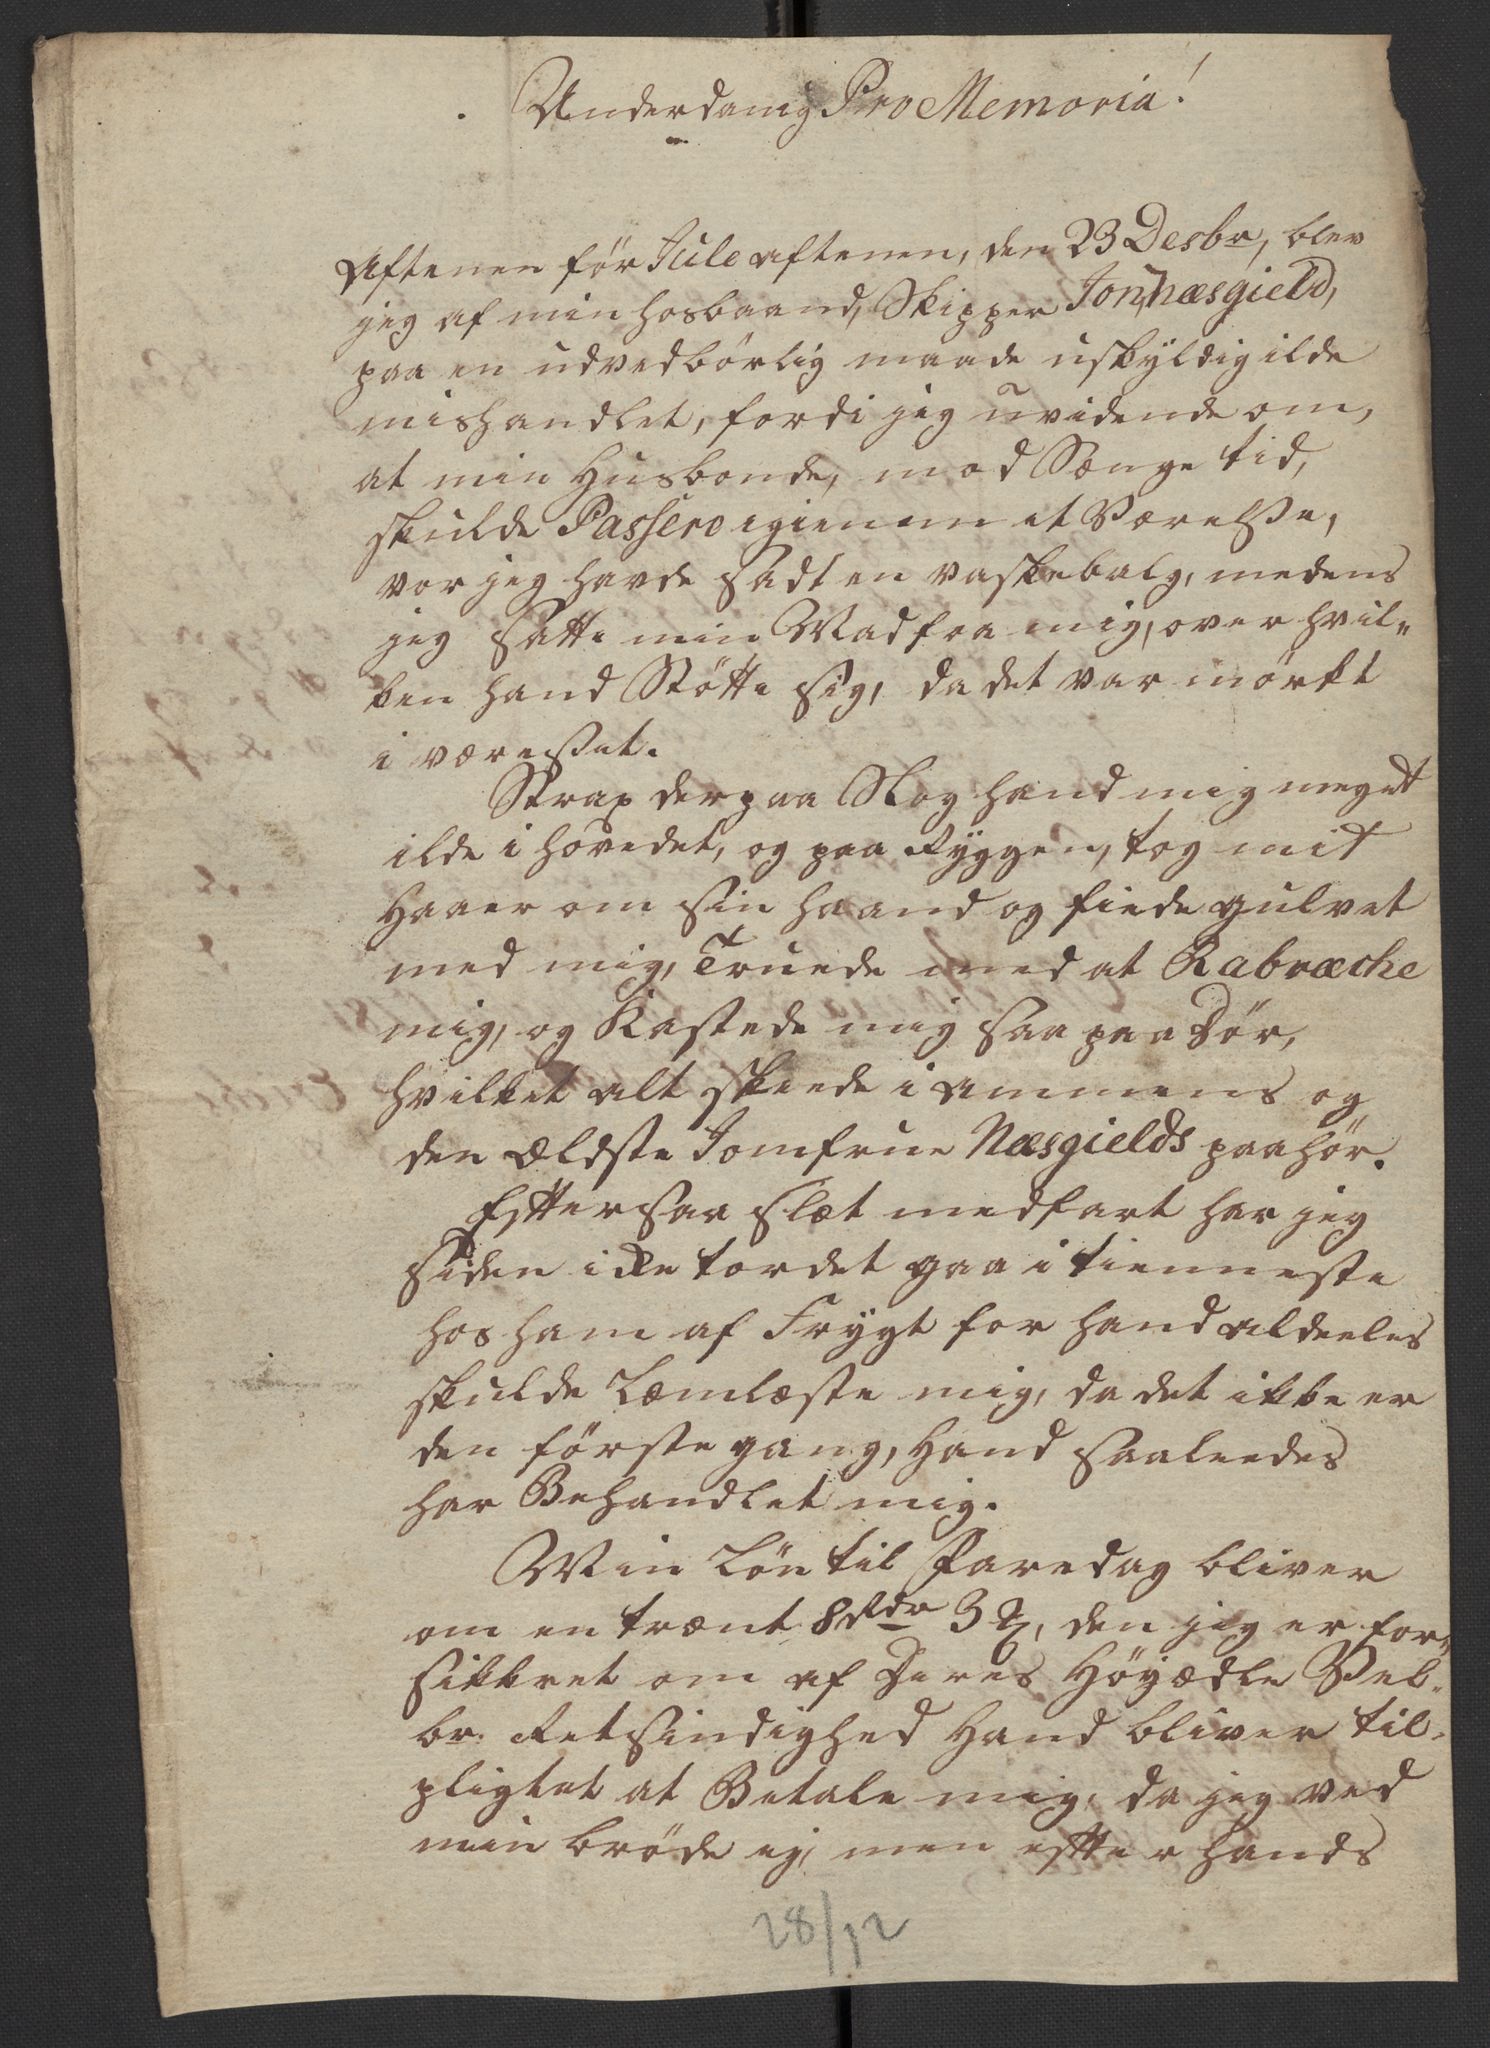 Underdanig Pro Memoria!
Aftenen før Juleaftenen, den 23 Desbr, blev
jeg af min Hosbaand, Skipper Jon Næsgield,
paa en udvedbørlig maade uskyldig ilde
mishandlet, fordi jeg uvidende om,
at min Husbonde, mod Sænge tid,
skulde Passere igienem et Værelse,
vor jeg havde sadt en vaskebalg, medens
jeg satte min Mad fra mig, over hvil„
ken hand Støtte sig, da det var mørkt
i værelset.
Strax derpaa Slog hand mig meget
ilde i hovedet, og paa Ryggen, tog mit
Haaer om sin haand og fiede gulvet
med mig, Truede med at Rabrække
mig, og Kastede mig saa paa Dør,
hvilket alt skeede i Ammens og
den Ældste Jomfrue Næsgields paahør.
Efter saa slæt medfart har jeg
siden icke tordet gaa i tienneste
hos ham af Frygt for hand aldeeles
skulde Læmlæste mig, da det ikke er
den første gang, Hand saaleedes
har Behandlet mig.
Min Løn til Faredag bliver
om en trænt 8 Rdr 3 , den jeg er for„
sikkret om af Deres Høyædle Vel„
br. Retsindighed Hand bliver til„
pligtet at Betale mig, da jeg ved
min brøde ej, men efter hands
28/12